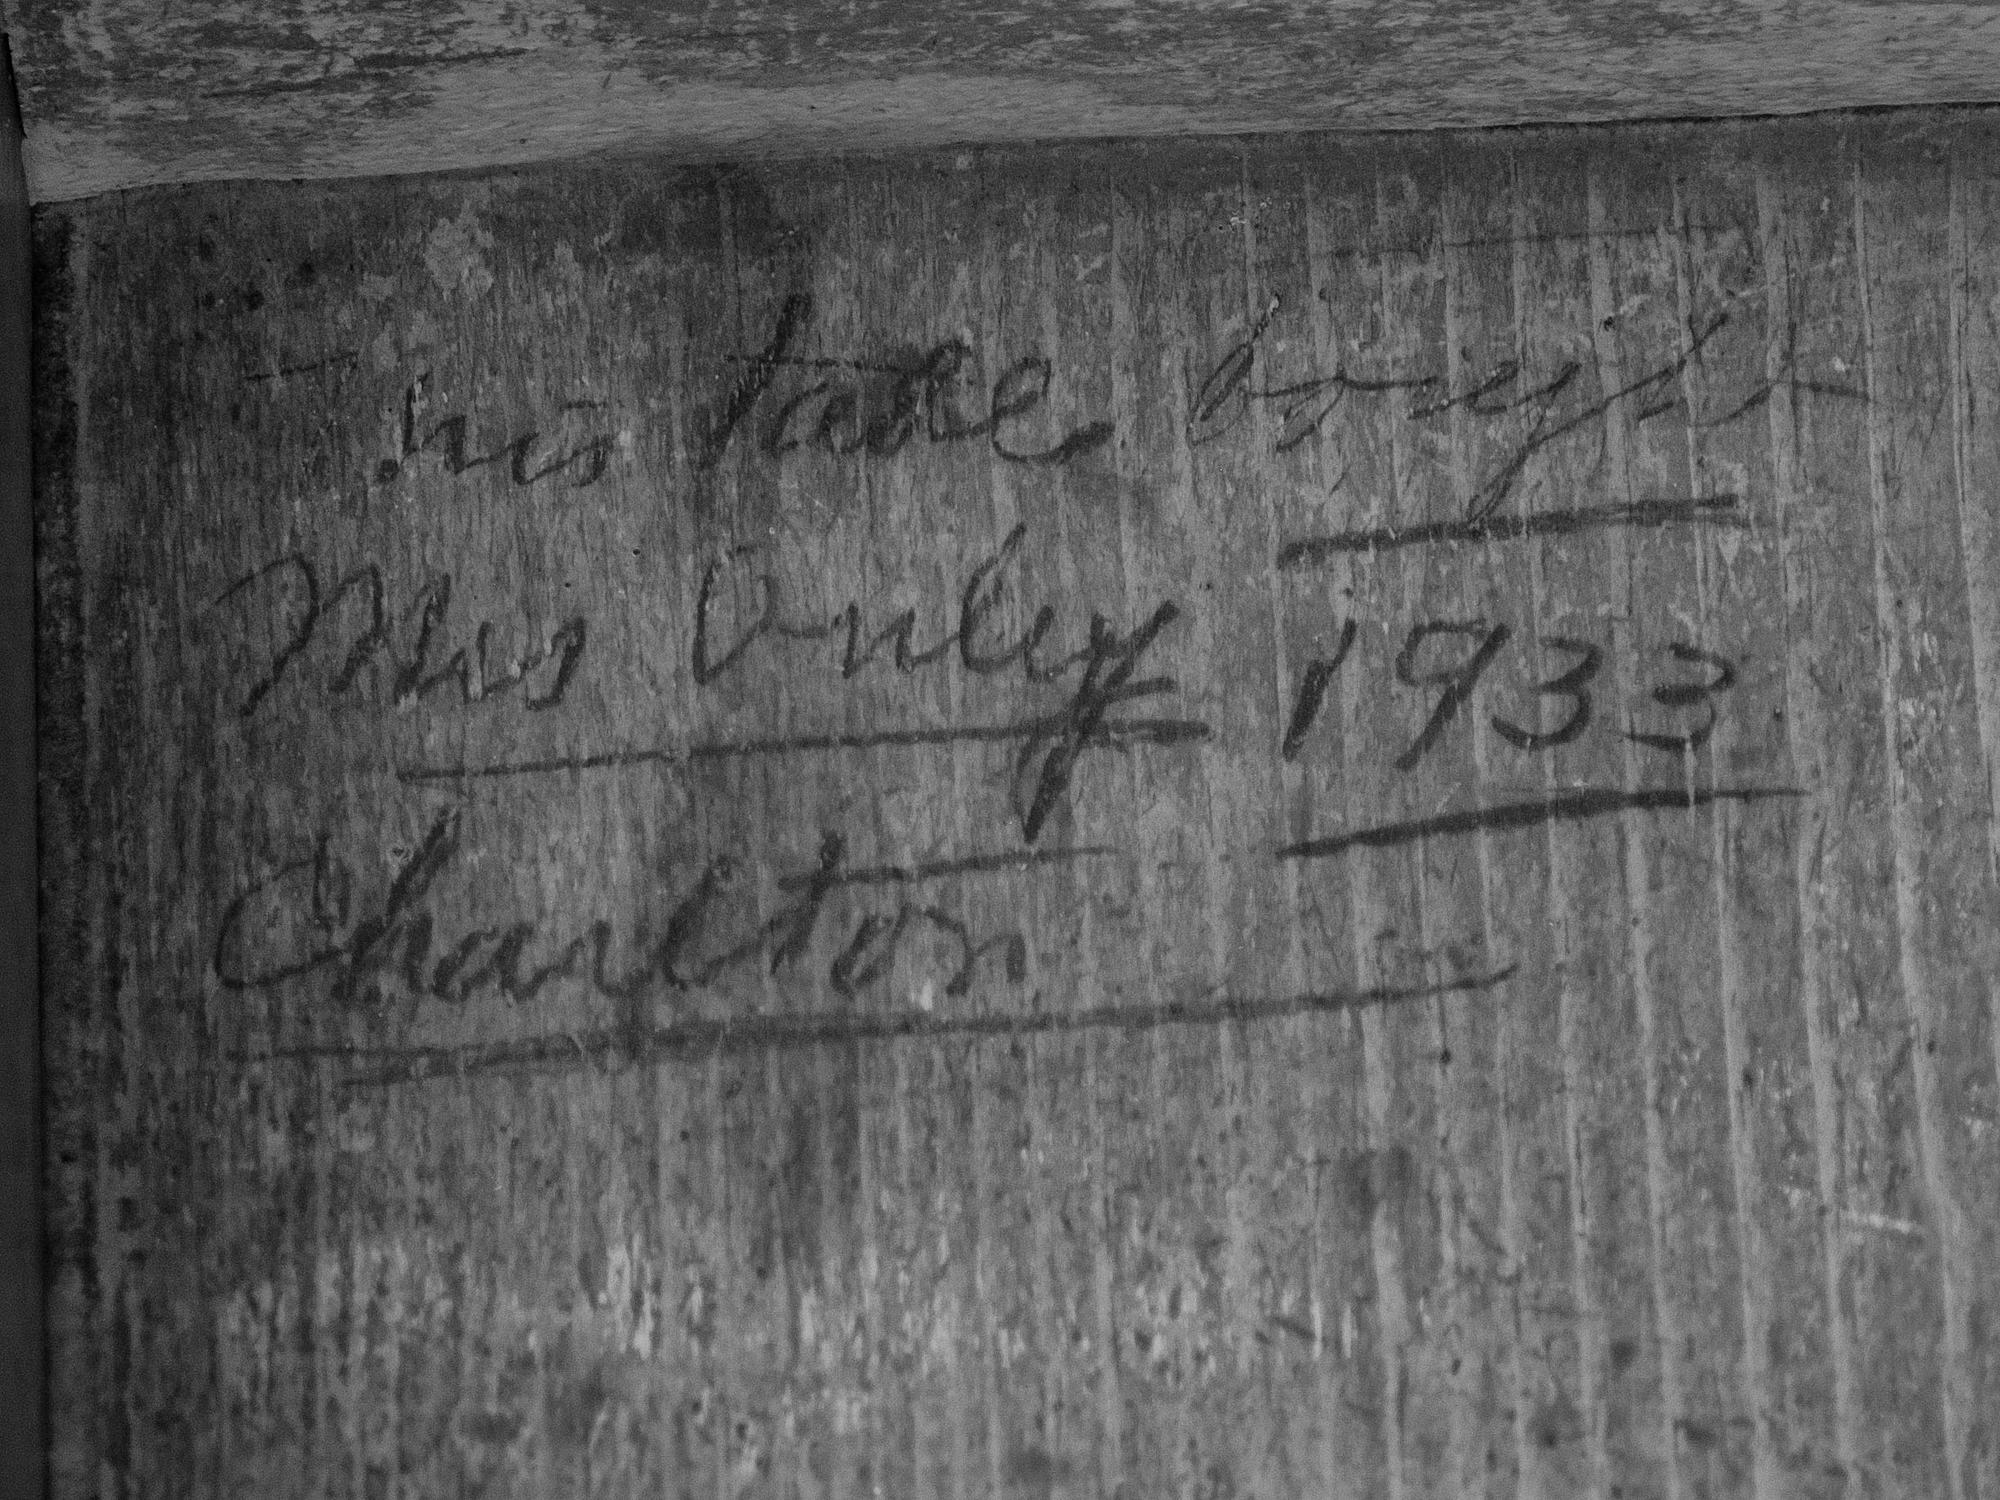 This table bought
Mrs 1933
Charlton